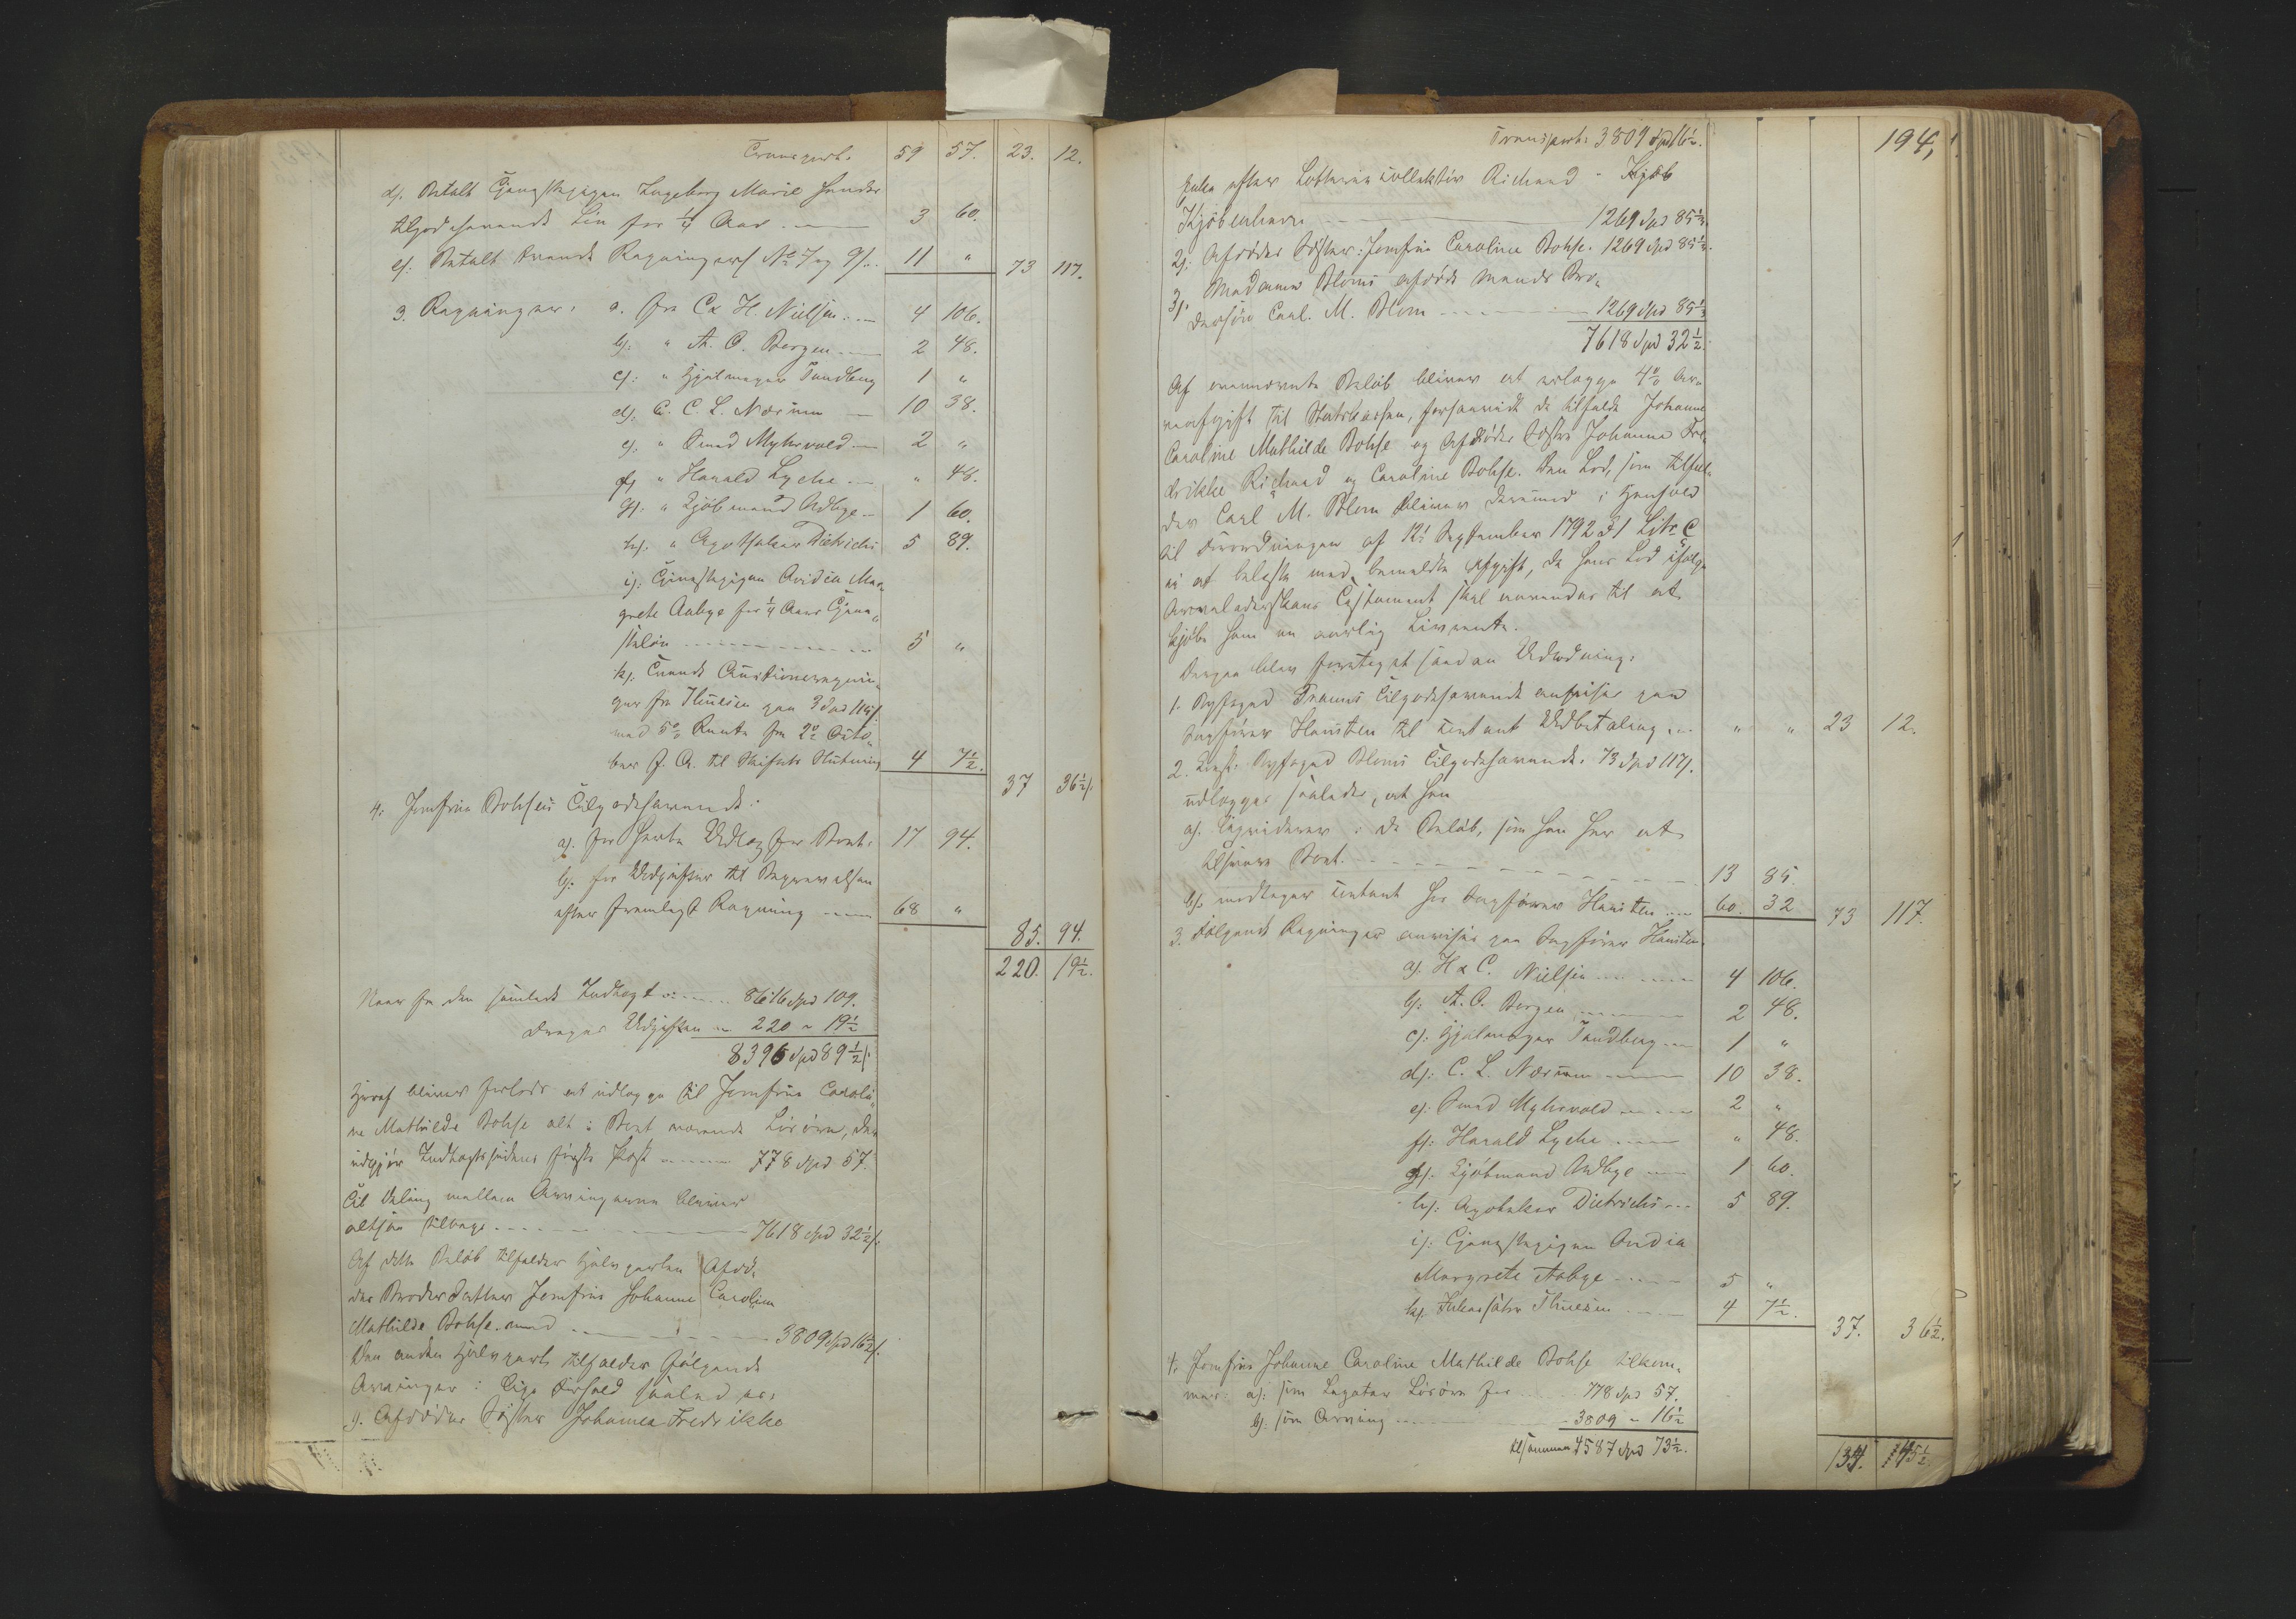 Transport. 59 57. 23. 12.
d). Betalt Tjenestepigen Ingeborg Marie hendes
tilgodehavende Løn for 1/4 Aar. 3 60.
e). Betalt tvende Regninger No 7 og 9. 11 " 73 117.
3. Regninger: a. fra C & H. Nielsen 4 106.
b). " A. O. Bergen 2 48.
c). " Hjulmager Tandberg 1 "
d). C. L. Nærum 10 38.
e). " Smed Myhrvold 2 "
f) " Harald Lyche " 48.
g). " Kjøbmand Aabye 1 60.
h). " Apotheker Dietrichs 5 89.
i). Tjenestepigen Ovidia Mar-
grete Aabye for 1/4 Aars Tjene-
steløn 5 "
k). Tvende Auctionsregnin-
ger fra Thuesen paa 3 Spd
med 5% Rente fra 2 Octo-
ber f. A. til Skiftets Slutning 4 7 1/2.
37 36 1/2
4. Jomfru Bohses Tilgodehavende:
a). for havte Udlæg for Boet. 17 94.
b). for Udgifter til Begravelsen
efter fremlagt Regning 68 "
85. 94.
220. 19 1/2.
Naar fra den samlede Indtægt 8616 Spd 109.
drages Udgiften 220 " 19 1/2
8396 Spd 89 1/2
Heraf bliver forlods at udlægge til Jomfru Caroli-
ne Mathilde Bohse alt i Boet værende Løsøre, der
udgjør Indtægtssidens første Post 778 Spd 57.
Til Deling mellem Arvingerne bliver
altsaa tilbage 7618 Spd 32 1/2
Af dette Beløb tilfalder Halvparten Afdø-
des Broderdatter Jomfru Johanne Caroline
Mathilde Bohse med 3809 Spd 16 1/2
Den anden Halvpart tilfalder følgende
Arvinger i lige Forhold saaledes:
1). Afdødes Søster Johanna Fredrikke
Transport: 3809 Spd 16 1/2. 194,
Enke efter Lotteriecollektør Richard
Kjøbenhavn 1269 Spd 85 1/2
2). Afdødes Søster: Jomfru Caroline Bohse. 1269 Spd 85 1/2.
3). Madame Bloms afdøde Mands Bro-
dersøn Carl. M. Blom 1269 Spd 85 1/2
7618 Spd 32 1/2.
Af ovennævnte Beløb bliver at erlægge 4% Ar-
veafgift til Statskassen, forsaavidt de tilfalde Johanne
Caroline Mathilde Bohse og Afdødes Søstre Johanne Fre-
drikke Richard og Caroline Bohse. Den Lod, som tilfal-
der Carl M. Blom bliver derimod i Henhold
til Forordningen af 12 September 1792 § 1 Litr C
ei at belægte med bemeldte Afgift, da hans Lod ifølge
Arveladerskens Testament skal anvendes til at
kjøbe ham en aarlig Livrente.
Derpaa blev foretaget saadan Udlodning:
1. Byfoged Tilgodehavende anvises paa
Sagfører Hansteen til contant Udbetaling " " 23 12.
2. Const. Byfoged Bloms Tilgodehavende. 73 Spd 117.
udlægges saaledes, at han
a). liqviderer i de Beløb, som han har at
tilsvare Boet. 13 85.
b). modtager contant hos Sagfører Hansteen 60. 32 73 117.
3. Følgende Regninger anvises paa Sagfører Hansteen.
a). H & C. Nielsen 4 106.
b). A. O. Bergen 2 48.
c). Hjulmager Tandberg 1 "
d). C. L. Nærum 10 38.
e). Smed Myhrvold 2 "
f). Harald Lyche " 48.
g). Kjøbmand Aabye 1 60.
h). Apotheker Dietrichs 5 89.
i). Tjenestepigen Ovidia
Margrete Aabye 5 "
k). Thuesen 4 7 1/2.
37. 36 1/2.
4. Jomfru Johanne Caroline Mathilde Bohse tilkom-
mer: a). som Legatar Løsøre for 778 Spd 57.
b). som Arving 3809 " 16 1/2
tilsammen 4587 Spd 73 1/2.
134. 45 1/2